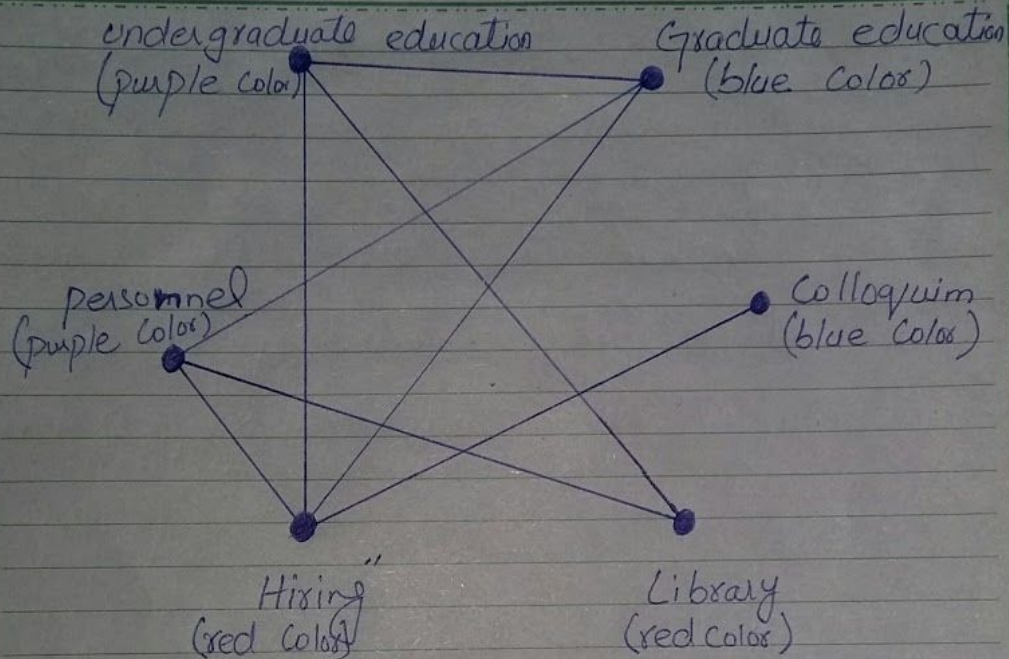 undergraduate education
(purple color)
Graduate education
(blue color)
personnel
(purple color)
Colloquim
(blue Color)
Hiring
(red Color)
Library
(red color)